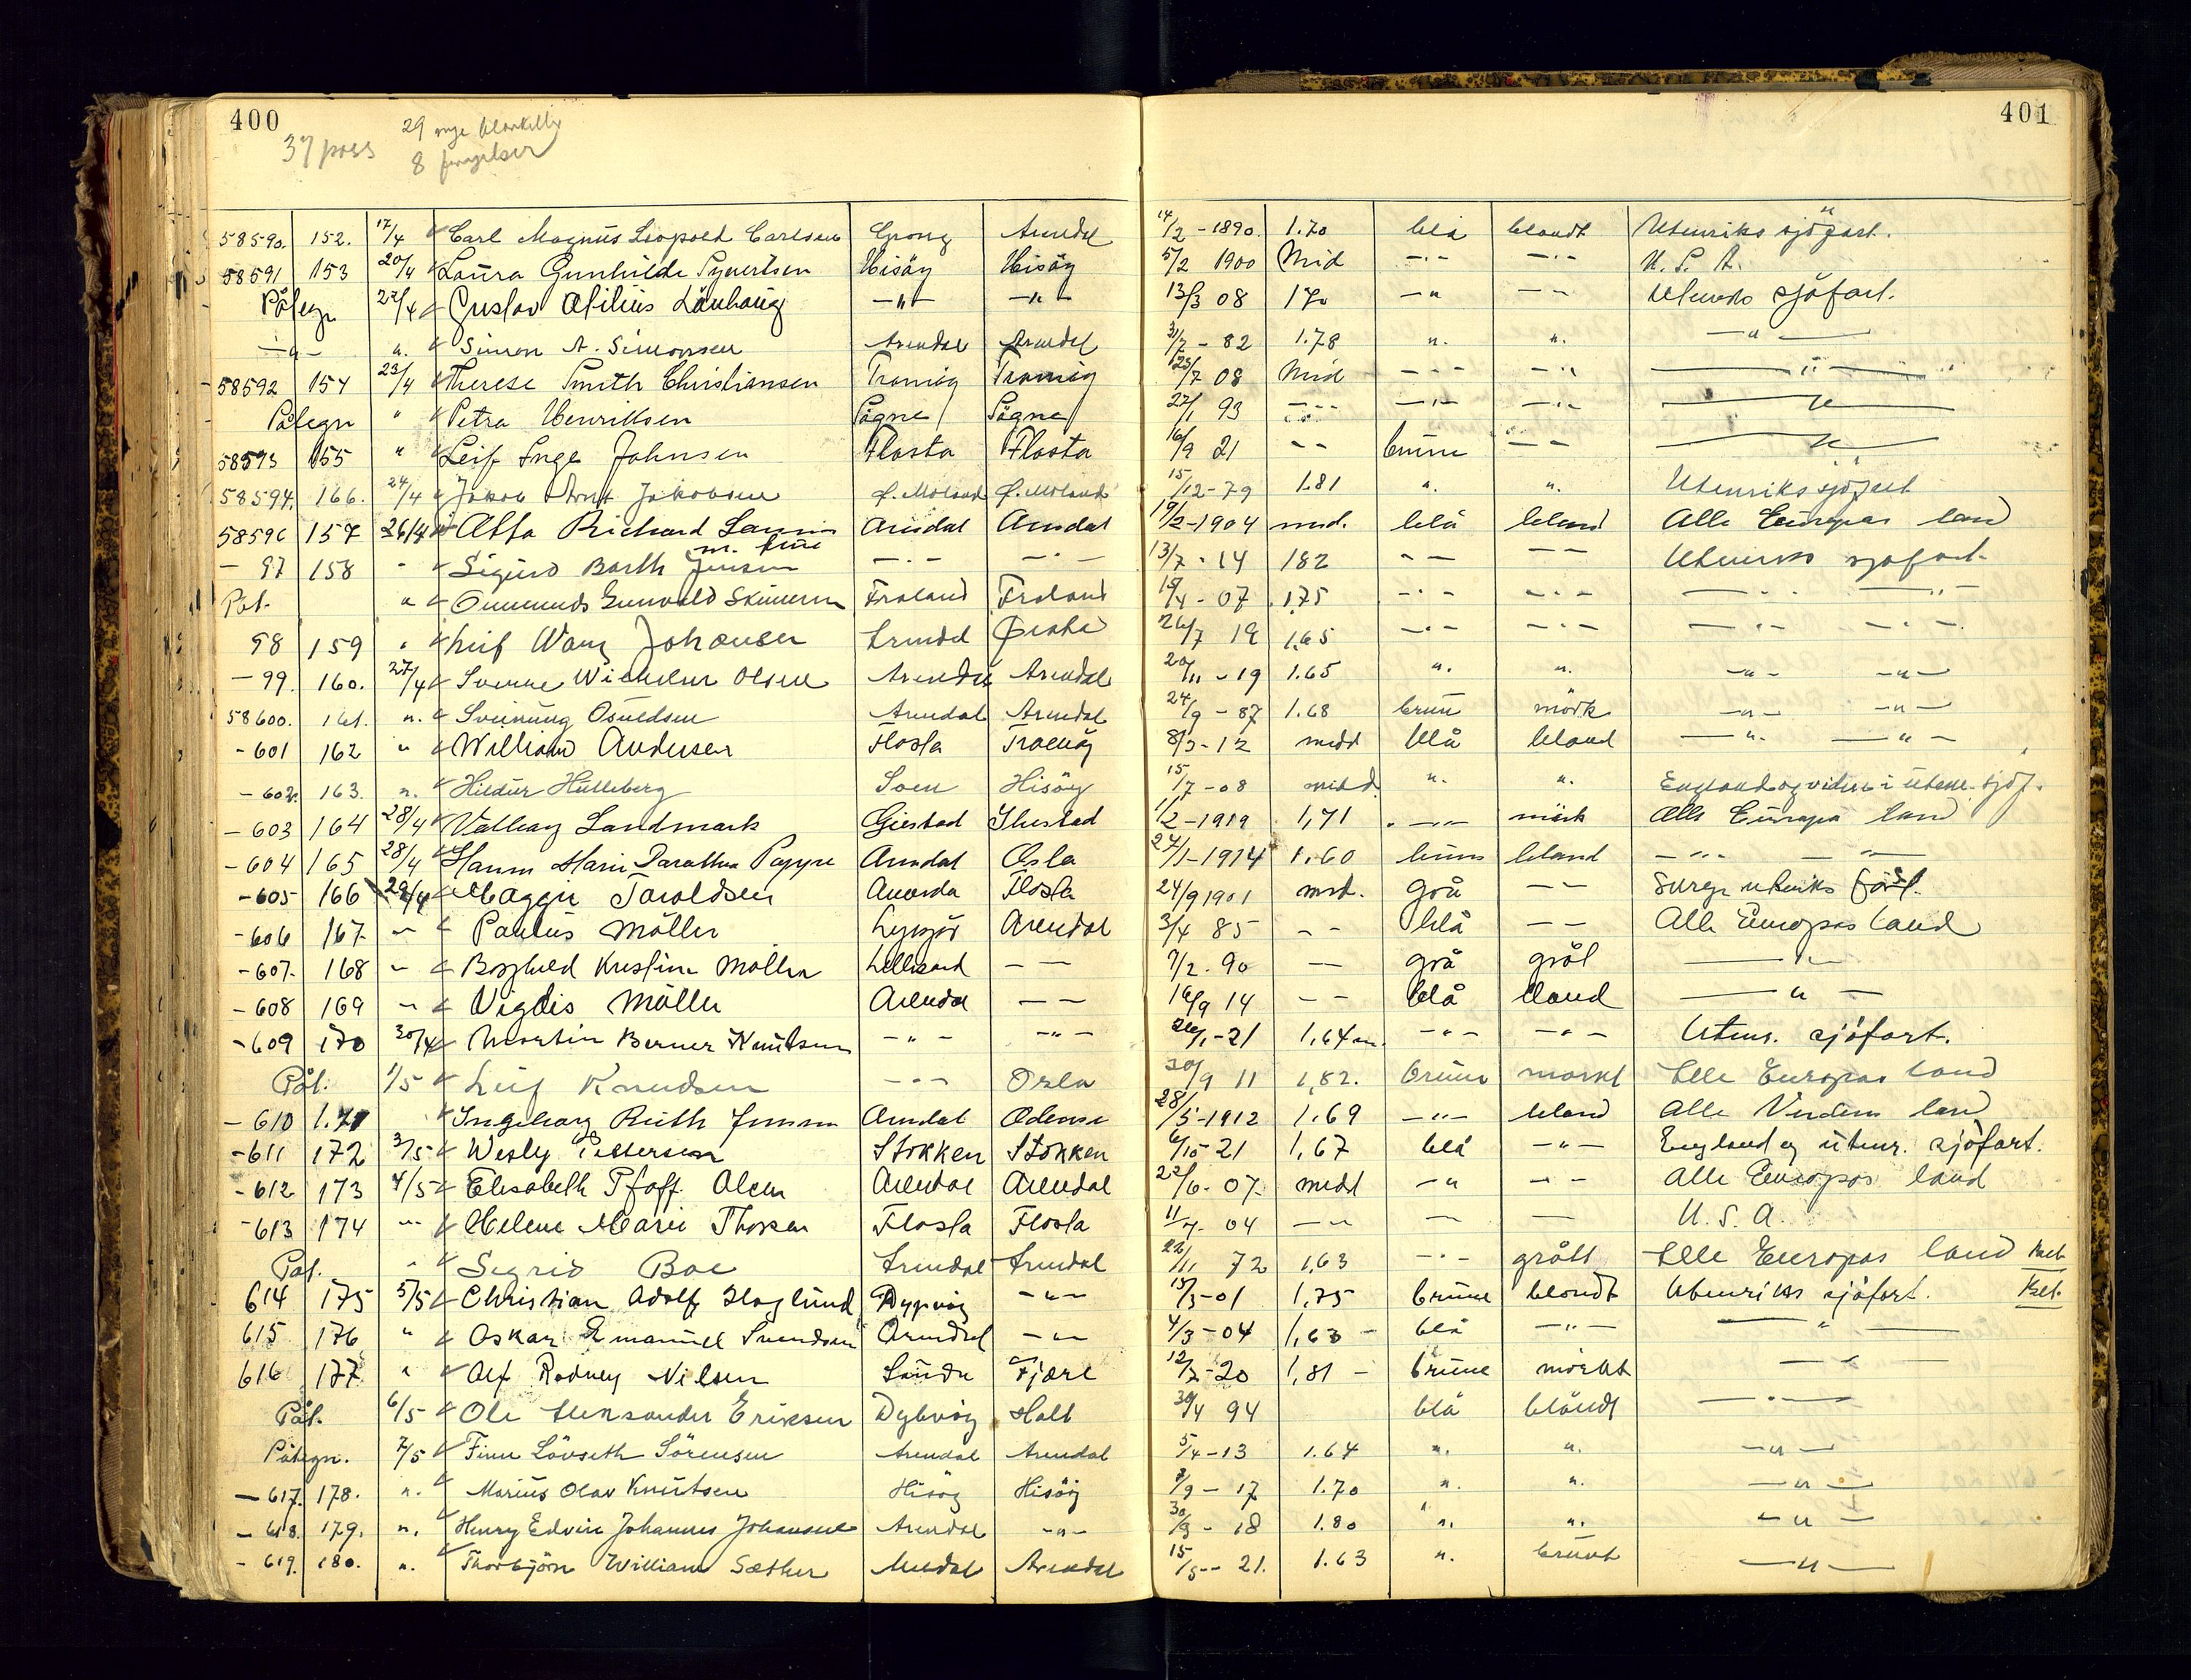 400
401
37 pass 29 nye
8
58590. 152. 17/4 Carl Magnus Leopold Carlsen Grong Arendal 14/2 - 1890. 1.70 blå blondt Utenriks sjöfart.
58591 153 20/4 Laura Gunhilde Syvertsen Hisöy Hisöy 5/2 1900 Mid —„— —„— U. S. A.
Påtegn 22/4 Gustav —„— —„— 13/3 08 170 —„ —— sjöfart.
—„— „. Simon A. Simonsen Arendal Arendal 31/7 - 82 1.78 „. „. —„—
58592 154 23/4 Therese Smith Christiansen Tromöy Tromöy 7 08 Mid —„— —„— —„—
Påtegn „ Petra Henriksen Sögne Sögne 27/1 93 —„— —„— —„— —„—
58593 155 „ Leif Inge Johnsen Flosta Flosta 16/9 21 —— brune —— —„—
58594. 166. 24/4 Jakob Jakobsen Ø. Moland Ø. Moland 15/12 - 79 1.81 „. „. Utenriks sjöfart
58596 157 26/4 Richard Arendal Arendal 19/2-1904 md. blå blond Alle Europas land
m. frue
— 97 158 „ Sigurd Barth Jensen —„— —„— 13/7 - 14 182 —— —— Utenriks sjøfart
Påt. „ Froland Froland 19/4 - 07 1.75 —„— —„— —„— —„—
98 159 „ Leif Wang Johansen Arendal 26/7 19 1.65 —„— —„— —„— —„—
— 99. 160. 27/4 Olsen Arendal Arendal 20/11 - 19 1.65 „. „. —„— —„—
58600. 161. „. Sveinung Osuldsen Arendal Arendal 24/9 - 87 1.68 brun mörk —„— —„—
- 601 162 „ William Andersen Flosta Tromöy 8/3 - 12 midd blå blond —„— —„—
- 602. 163. „. Hildur Hulleberg Hisöy 15/7 - 08 midd. „. „. England og videre i sjöf.
- 603 164 28/4 Valborg Landmark Gjestad 1/2 - 1919 1,71 —„— mörk Alle Europa land
- 604 165 28/4 Marie Dorothea Arendal Oslo 27/1-1914 1.60 brune blond —„— —„—
- 605 166 29/4 Maggie Taraldsen Flosta 24/9 1901 md. grå ——
- 606 167 — Paulus Möller Lyngör Arendal 3/4 85 —— blå —— Alle Europas land
- 607. 168 — Borghild Kristine Möller Lillesand —— 7/2. 90 —— grå grål —„—
- 608 169 — Vigdis Möller Arendal —— 16/9 14 —— blå blond —„—
- 609 170 30/4 Martin Berner Knutsen —„— —„— 26/1 - 21 1,64 m. —„— —„— Utenr. sjöfart.
Påt. 1/5 Leif Knudsen —„— Oslo 30/9 11 1,82. brune morkt Alle Europas land
- 610 1.71 Ingeborg Ruth Jensen Arendal Odense 28/5-1912 1.69 —„— blond Alle Verdens land
- 611 172 3/5 Wesly Pettersen Stokken Stokken 6/10 - 21 1,67 blå —„— England og utenr. sjöfart.
- 612 173 4/5 Elisabeth Pfaff Olsen Arendal Arendal 22/6. 07. midd —„ —— Alle Europas land
- 613 174 —„ Helene Marie Flosta Flosta 11/7. 04 —„ — — U. S. A.
Påt. „ Sigrid Boe Arendal Arendal 22/11 72 1,63 —„— grått Alle Europas land
614 175 5/5 Christian Adolf Haglund Dypvåg —„— 15/3 - 01 1,75 brune blondt Utenriks sjöfart.
615 176 „ Oskar Emanuel Svendsen Arendal —„— 4/3 - 04 1,63 - blå —„— —„—
616 177. „ Alf Rodney Nilsen Sande Fjære 12/7 - 20 1,81 - brune mörkt —„—
Påt. 6/5 Ole Aleksander Eriksen Dybvåg Holt 30/4 94 blå blondt —„—
Påtegn. 7/5 Finn Lövseth Sörensen Arendal Arendal 5/4 - 13 1.64 „. „. —„—
— 617. 178. „. Marius Olav Knutsen Hisöy Hisöy 7/9 - 17 1.70 „. „. —„—
- 618. 179. „. Henry Edvin Johannes Johansen Arendal —„— 30/9 - 18 1.80 „. „. —„—
- 619. 180. „. Thorbjörn William Sæther Arendal Arendal 15/5 - 21. 1.63 „. brunt —„—